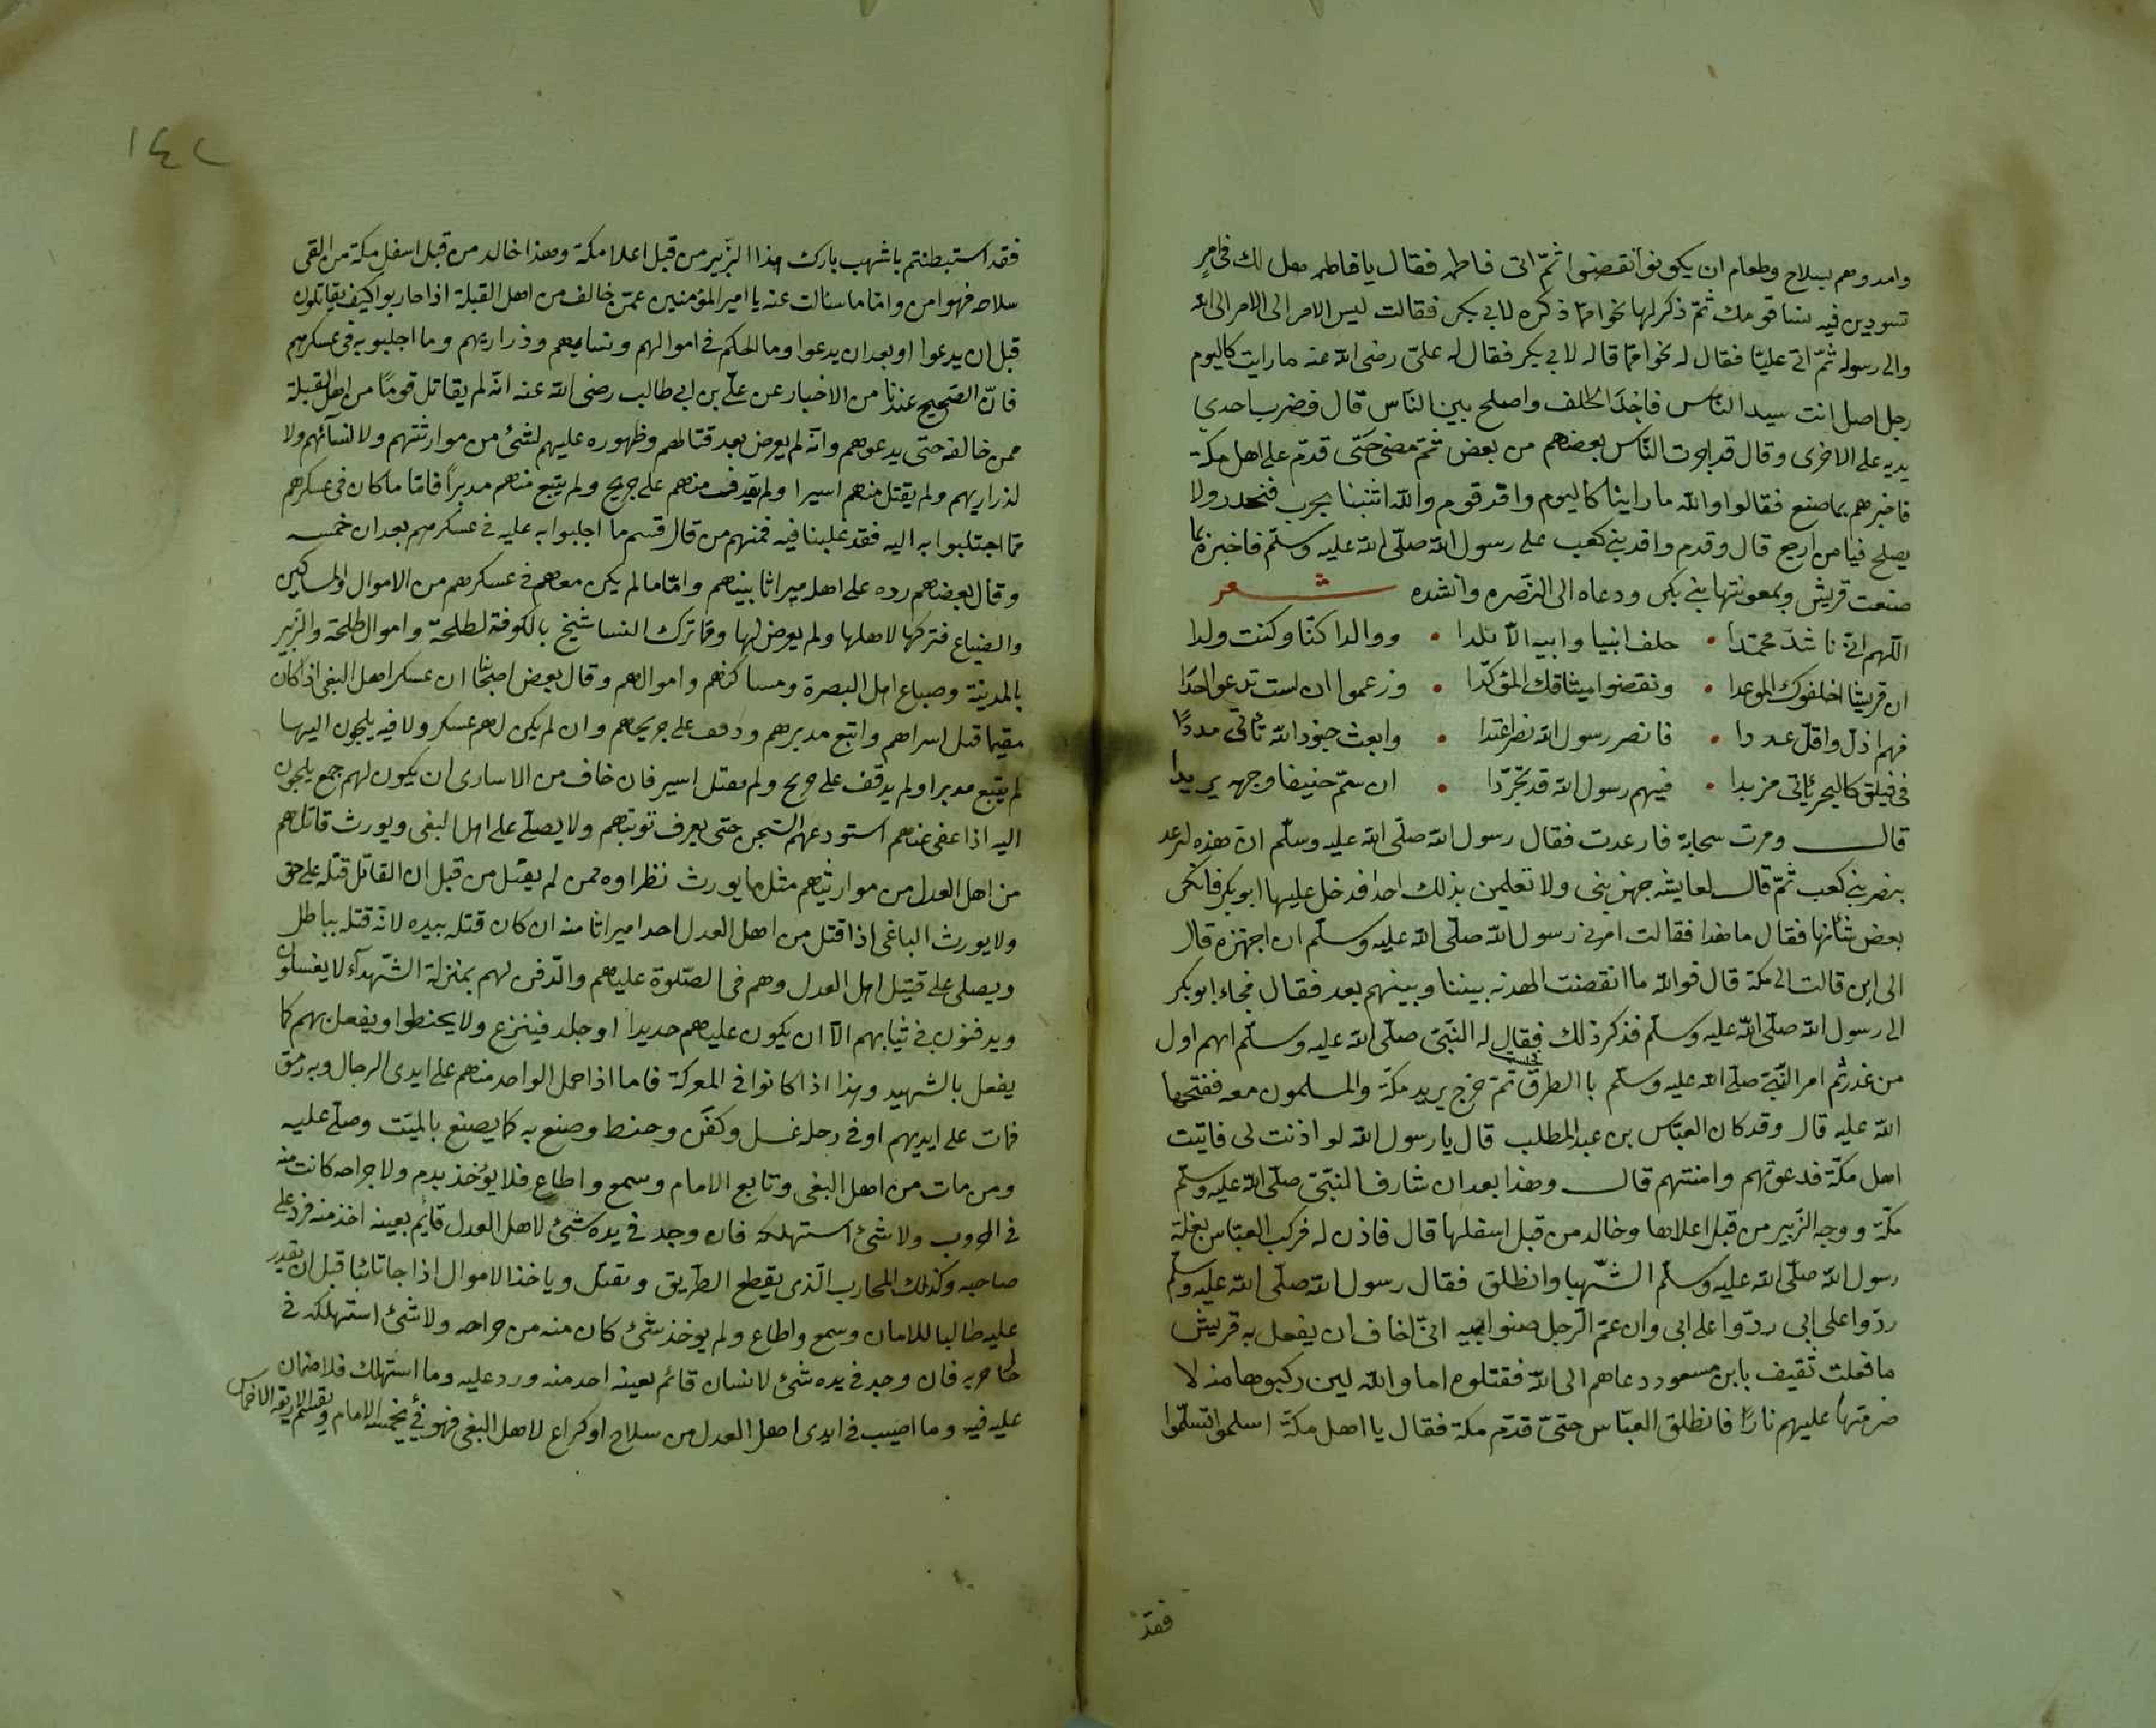 وامدوهم بسلاح وطعام ان يكونوا نقضوا ثمّ اتى فاطمه فقال يا فاطمه هل لك فى امرٍ
تسودين فيه نسا قومك ثمّ ذكر لها نحوا ممّا ذكره لابى بكر فقالت ليس الامر الى الامر الى الله
والى رسوله ثمّ اتى عليّا فقال له نحوا ممّا قاله لابى بكر فقال له علىّ رضى الله عنه ما رايت كاليوم
رجل اصل انت سيد الناس فاجدّ الحلف واصلح بين النّاس قال فضرب احدى
يديه على الاخرى وقال قد اجرت النّاس بعضهم من بعض ثمّ مضى حتّى قدّم على اهل مكة
فاخبرهم بما صنع فقالوا والله ما راينا كاليوم وافد قوم والله اتتنا بحرب فنحدر ولا
يصلح فيامن ارجع قال وقدم وافد بنى كعب على رسول الله صلّى الله عليه وسلّم فاخبره بما
صنعت قريش وبمعونتها بنى بكر ودعاه الى النّصره وانشده شعر
اللّهمّ انّى ناشدّ محمّدا • حلف ابنيا وابيه الاتلدا • ووالدا كنّا وكنت ولدا
ان قريشا اخلفوك الموعدا • ونقضوا ميثاقك المؤكدّا • وزعموا ان لست تدعوا احدًا
فهم اذلّ واقلّ عددا • فانصر رسول الله نصرا عتدا • وابعث جنود الله تاتى مددًا
فى فيلق كالبحر ياتى مزبدا • فيهم رسول الله قد تجرّدا • ان سمّ حنيفا وجهه يريدا
قال ومرت سحابة فارعدت فقال رسول الله صلّى الله عليه وسلّم انّ هذه لترعد
بنصر بنى كعب ثمّ قال لعايشه جهزينى ولا تعلمين بذلك احدا فدخل عليها ابو بكر فانكر
بعض شانها فقال ما هذا فقالت امرنى رسول الله صلّى الله عليه وسلّم ان اجهّزه قال
الى اين قالت الى مكة قال فوالله ما انقضت الهدنه بيننا وبينهم بعد فقال فجاء ابو بكر
الى رسول الله صلّى الله عليه وسلّم فذكر ذلك فقال له النّبىّ صلّى الله عليه وسلّم انهم اول
من غدر ثمّ امر النّبىّ صلّى الله عليه وسلّم باالطرق ثمّ خرج يريد مكّة والمسلمون معه ففتحها
الله عليه قال وقد كان العبّاس بن عبد المطلب قال يا رسول الله لو اذنت لى فاتيت
اهل مكّة فدعوتهم وامنتهم قال وهذا بعد ان شارف النّبىّ صلّى الله عليه وسلّم
مكّة ووجه الزّبير من قبل اعلاها وخالد من قبل اسفلها قال فاذن له فركب العبّاس بغلة
رسول الله صلّى الله عليه وسلّم الشّهبا وانطلق فقال رسول الله صلّى الله عليه وسلّم
ردّوا على ابى ردّوا على ابى وان عمّ الرّجل صنوا ابيه انّى اخاف ان يفعل به قريش
ما فعلت ثقيف بابن مسعود دعاهم الى الله فقتلوه اما والله لين ركبوها منه لا
ضرمتها عليهم نارًا فانطلق العبّاس حتىّ قدّم مكة فقال يا اهل مكّة اسلموا تسلموا
فقد
١٤٢
فقد استبطنتم باشهب بازك هذا الزّبير من قبل اعلا مكة وهذا خالد من قبل اسفل مكة من القى
سلاحه فهوا من وامّا ما سالت عنه يا امير المؤمنين عمّن خالف من اهل القبلة اذا حاربوا كيف يقاتلون
قبل ان يدعوا او بعد ان يدعوا وما الحكم فى اموالهم ونسايهم وذراريهم وما اجلبوا به فى عسكرهم
فانّ الصّحيح عندنا من الاخبار عن علىّ بن ابى طالب رضى الله عنه انّه لم يقاتل قومًا من اهل القبلة
ممن خالفه حتى يدعوهم وانّه لم يعرض بعد قتالهم وظهوره عليهم لشئ من مواريثهم ولا لنسآئهم ولا
لذراريهم ولم يقتل منهم اسيرا ولم يذفف منهم على جريح ولم يتبع منهم مدبرًا فامّا ما كان فى عسكرهم
ممّا اجتلبوا به اليه فقد غلبنا فيه فمنهم من قال قسم ما اجلبوا به عليه فى عسكرهم بعد ان خمسه
وقال بعضهم رده على اهله ميراثا بينهم وامّا ما لم يكن معهم فى عسكرهم من الاموال والمساكين
والضياع فتركها لاهلها ولم يعرض لها وممّا ترك النسا شيخ بالكوفة لطلحة واموال طلحة والزبير
بالمدينة وضياع اهل البصرة ومساكنهم واموالهم وقال بعض اصحابنا ان عسكر اهل البغى اذا كان
مقيما قتل اسراهم واتبع مدبرهم ودفف على جريحهم وان لم يكن لهم عسكر ولا فيه يلجون اليها
لم يتبع مدبرا ولم يدفف على جريح ولم يقتل اسير فان خاف من الاسارى ان يكون لهم جمع يلجون
اليه اذا عفى عنهم استودعهم السّجن حتى يعرف توبتهم ولا يصلّى على اهل البغى ويورث قاتلهم
من اهل العدل من مواريثهم مثل ما يورث نظراوه ممن لم يقتل من قبل ان القاتل قتله على حق
ولا يورث الباغى اذا قتل من اهل العدل احدا ميراثا منه ان كان قتله بيده لانّه قتله بباطل
ويصلى على قتيل اهل العدل وهم فى الصّلوة عليهم والدّفن لهم بمنزلة الشّهدآء لا يغسلون
ويدفنون فى ثيابهم الّا ان يكون عليهم حديدا او جلد فينزع ولا يحنطوا ويفعل بهم كما
يفعل بالشهيد وهذا اذا كانوا فى المعركة فاما اذا حمل الواحد منهم على ايدى الرجال وبه رمق
فمات على ايديهم او فى رحله غسل وكفّن وحنط وصنع به كما يصنع بالميّت وصلّى عليه
ومن مات من اهل البغى وتابع الامام وسمع واطاع فلا يؤخذ بدم ولا جراحه كانت منه
فى الحروب ولا شئ استهلكه فان وجد فى يده شئ لاهل العدل قايم بعينه اخذ منه فرد على
صاحبه وكذلك المحارب الّذى يقطع الطّريق ويقتل وياخذ الاموال اذا جا تائبا قبل ان يقدر
عليه طالبا للامان وسمع واطاع ولم يوخذ شئ كان منه من جراحه ولا شئ استهلكه فى
حال حربه فان وجد فى يده شئ لانسان قائم بعينه اخذ منه ورد عليه وما استهلك فلا ضمان
عليه فيه وما اصيب فى ايدى اهل العدل من سلاح او كراع لاهل البغى فهو فئ يخمسه الامام ويقسم الاربعه الاخماس